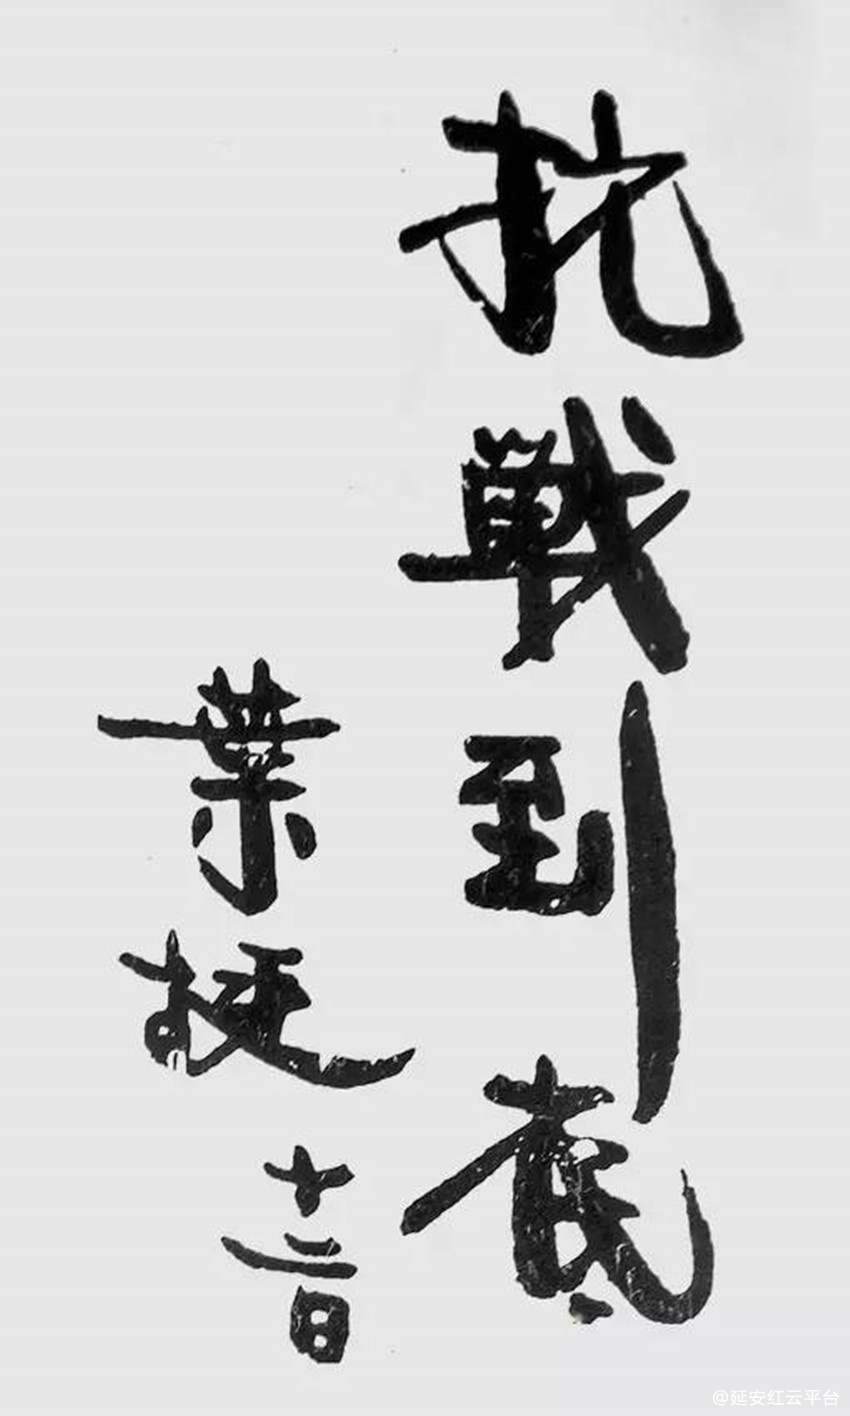 抗戰到底
葉挺 十二日
@延安红云平台